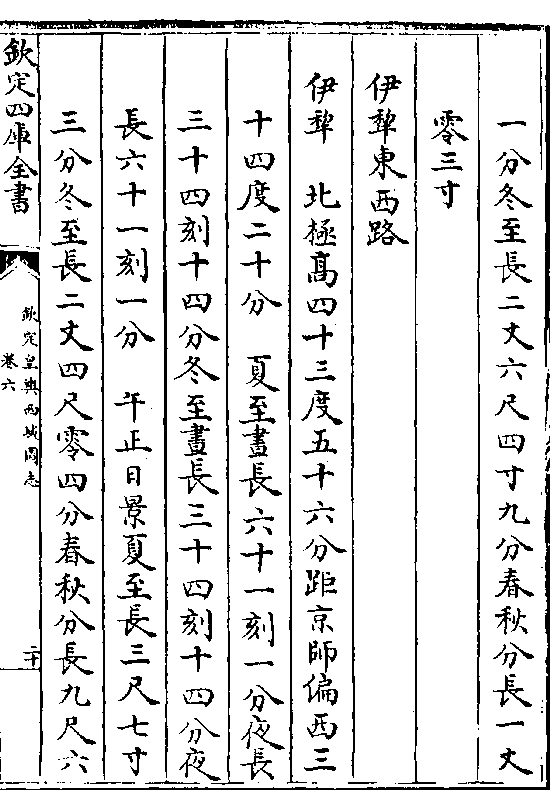 一分冬至長二丈六尺四寸九分春秋分長一丈
零三寸
伊犂東西路
伊犂　北極髙四十三度五十六分距京師偏西三
十四度二十分　夏至晝長六十一刻一分夜長
三十四刻十四分冬至晝長三十四刻十四分夜
長六十一刻一分　午正日景夏至長三尺七寸
三分冬至長二丈四尺零四分春秋分長九尺六
欽定四庫全書
欽定皇輿西域圖志
卷六
二十